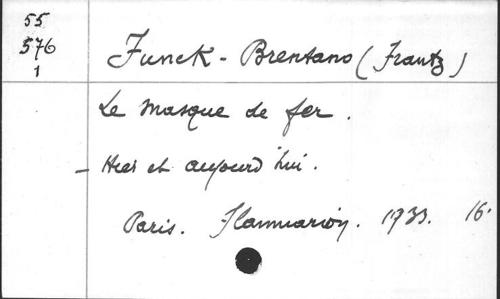 55
576
1
Funck-Brentano (Frantz)
Le masque de fer.
- Hier et aujourd'hui.
Paris. Flammarion. 1933. 16°